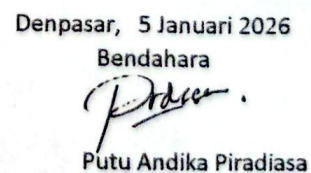 Denpasar, 5 Januari 2026
Bendahara
Putu Andika Piradiasa